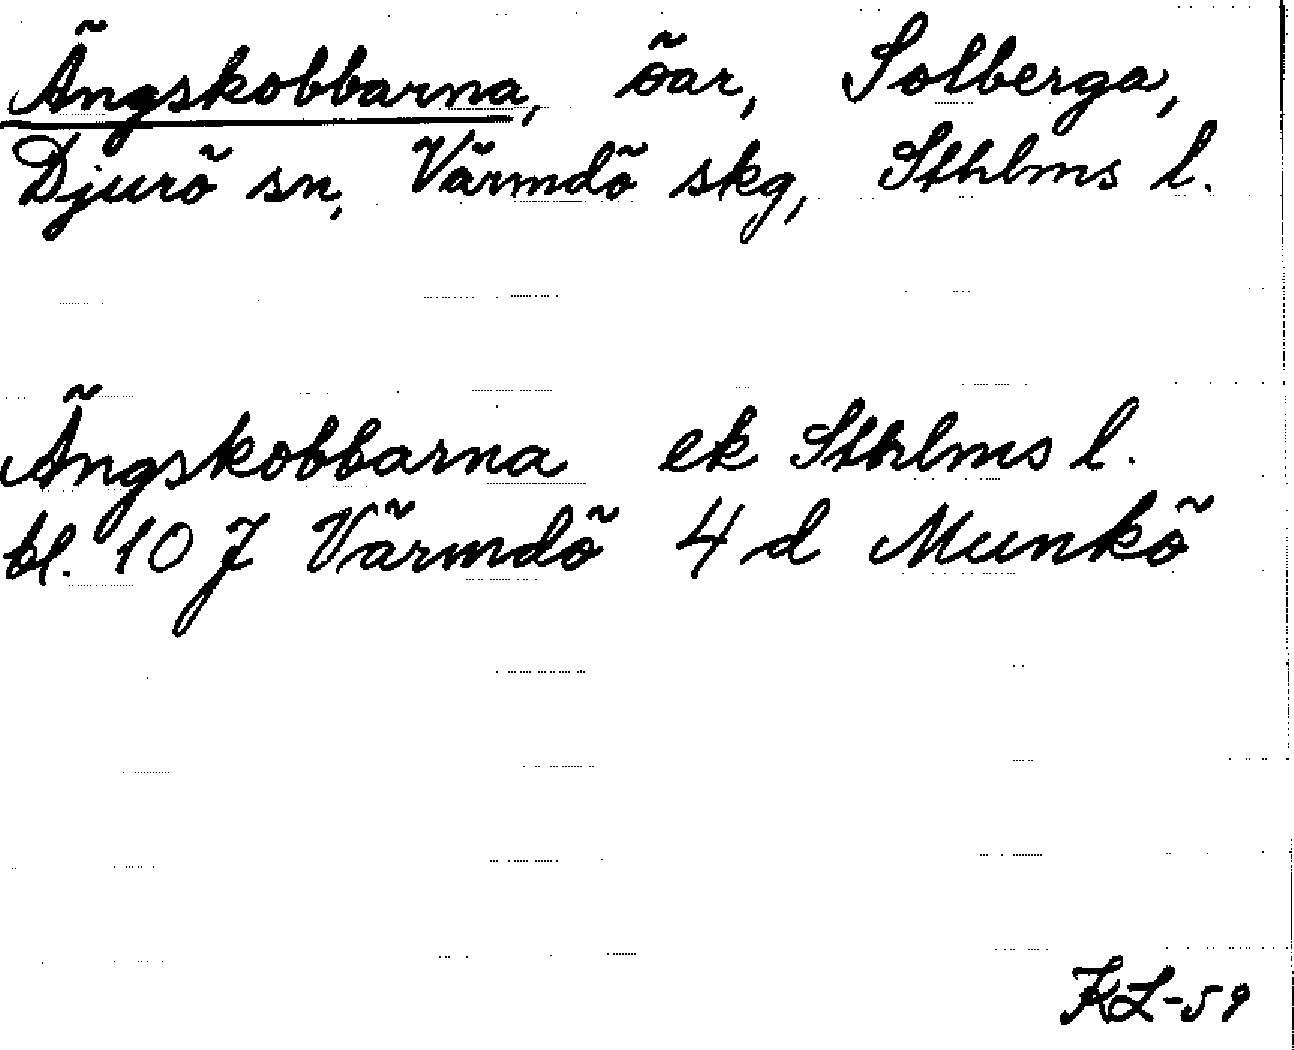 Ängskobbarna, öar, Solberga,
Djurö sn, Värmdö skg, Sthlms l.
Ängskobbarna ek Sthlms l.
bl. 10 J Värmdö 4 d Munkö
KL-59